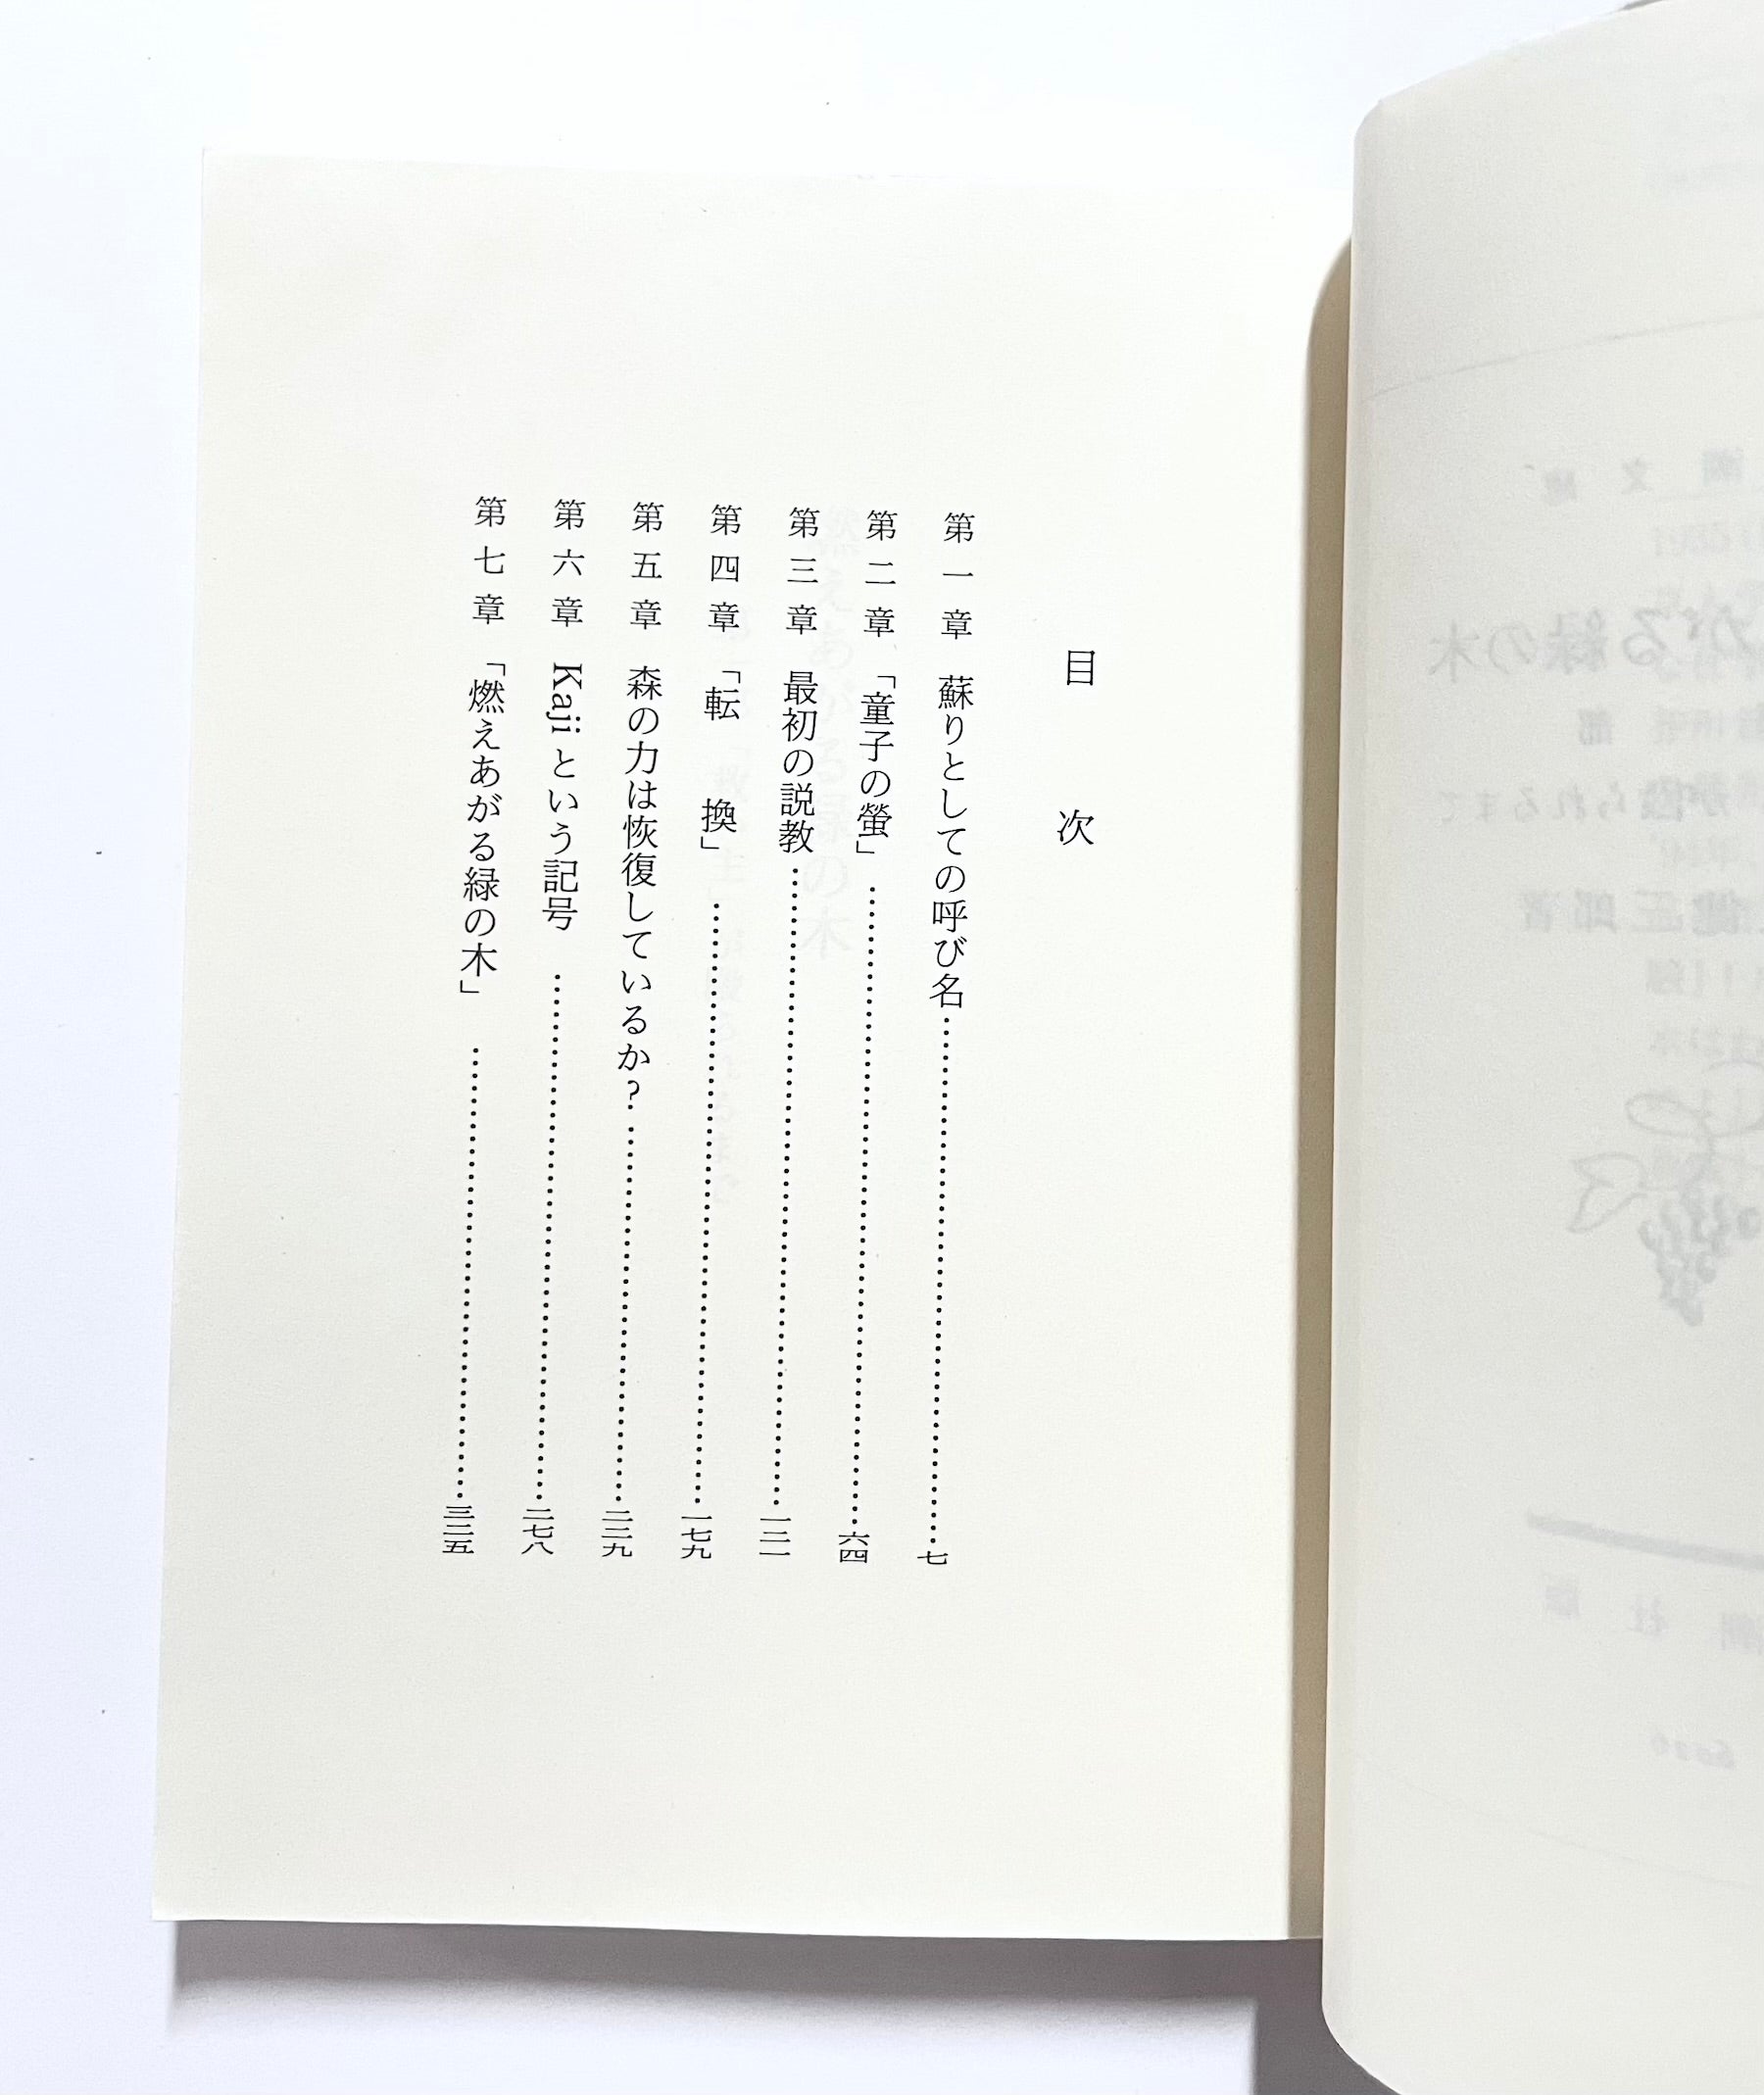 目次
第一章 蘇りとしての呼び名……七
第二章 「童子の螢」……六四
第三章 最初の説教……一二一
第四章 「転換」……一七九
第五章 森の力は恢復しているか?……二二九
第六章 Kajiという記号……二七八
第七章 「燃えあがる緑の木」……三二五